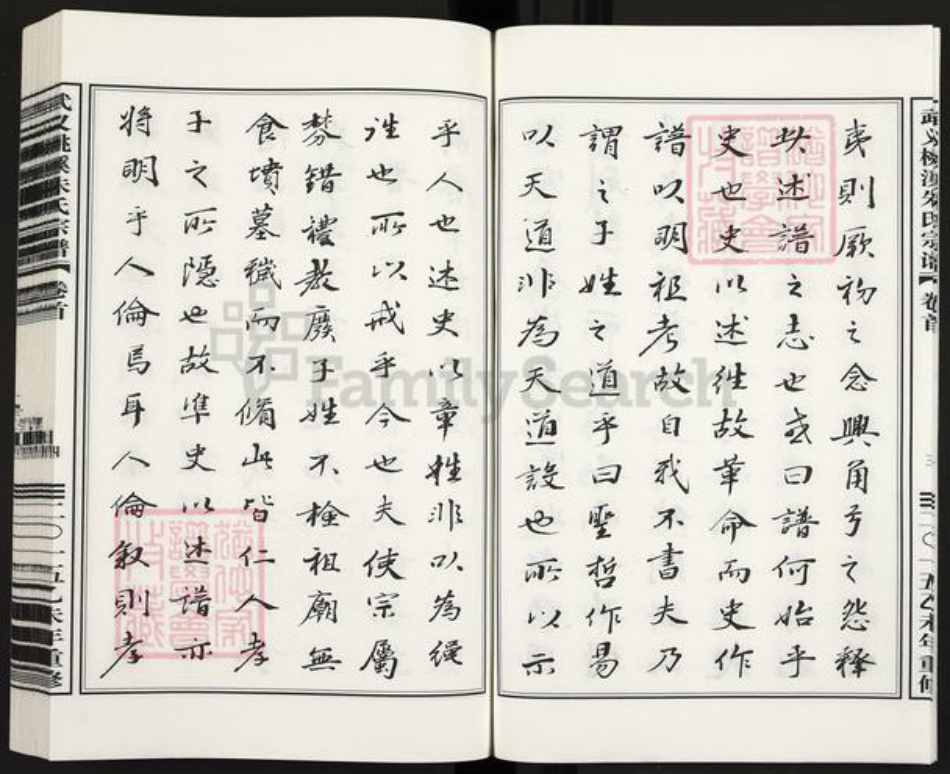 武义桃溪朱氏宗谱
卷首
二〇一五乙未年重修
夷則厥初之念興角弓之怨釋
此述譜之志也或曰譜何始乎
史也史以述往故革命而史作
譜以明祖考故自我不書夫乃
謂之子姓之道乎曰聖哲作易
以天道非為天道設也所以示
乎人也述史以章往非以為纓
往也所以戒乎今也夫使宗屬
棼錯禮教廢子姓不檢祖廟無
食墳墓穢而不脩此皆仁人孝
子之所隱也故準史以述譜亦
將明乎人倫焉耳人倫叙則孝
武义桃溪朱氏宗谱
卷首
二〇一五乙未年重修
FamilySearch